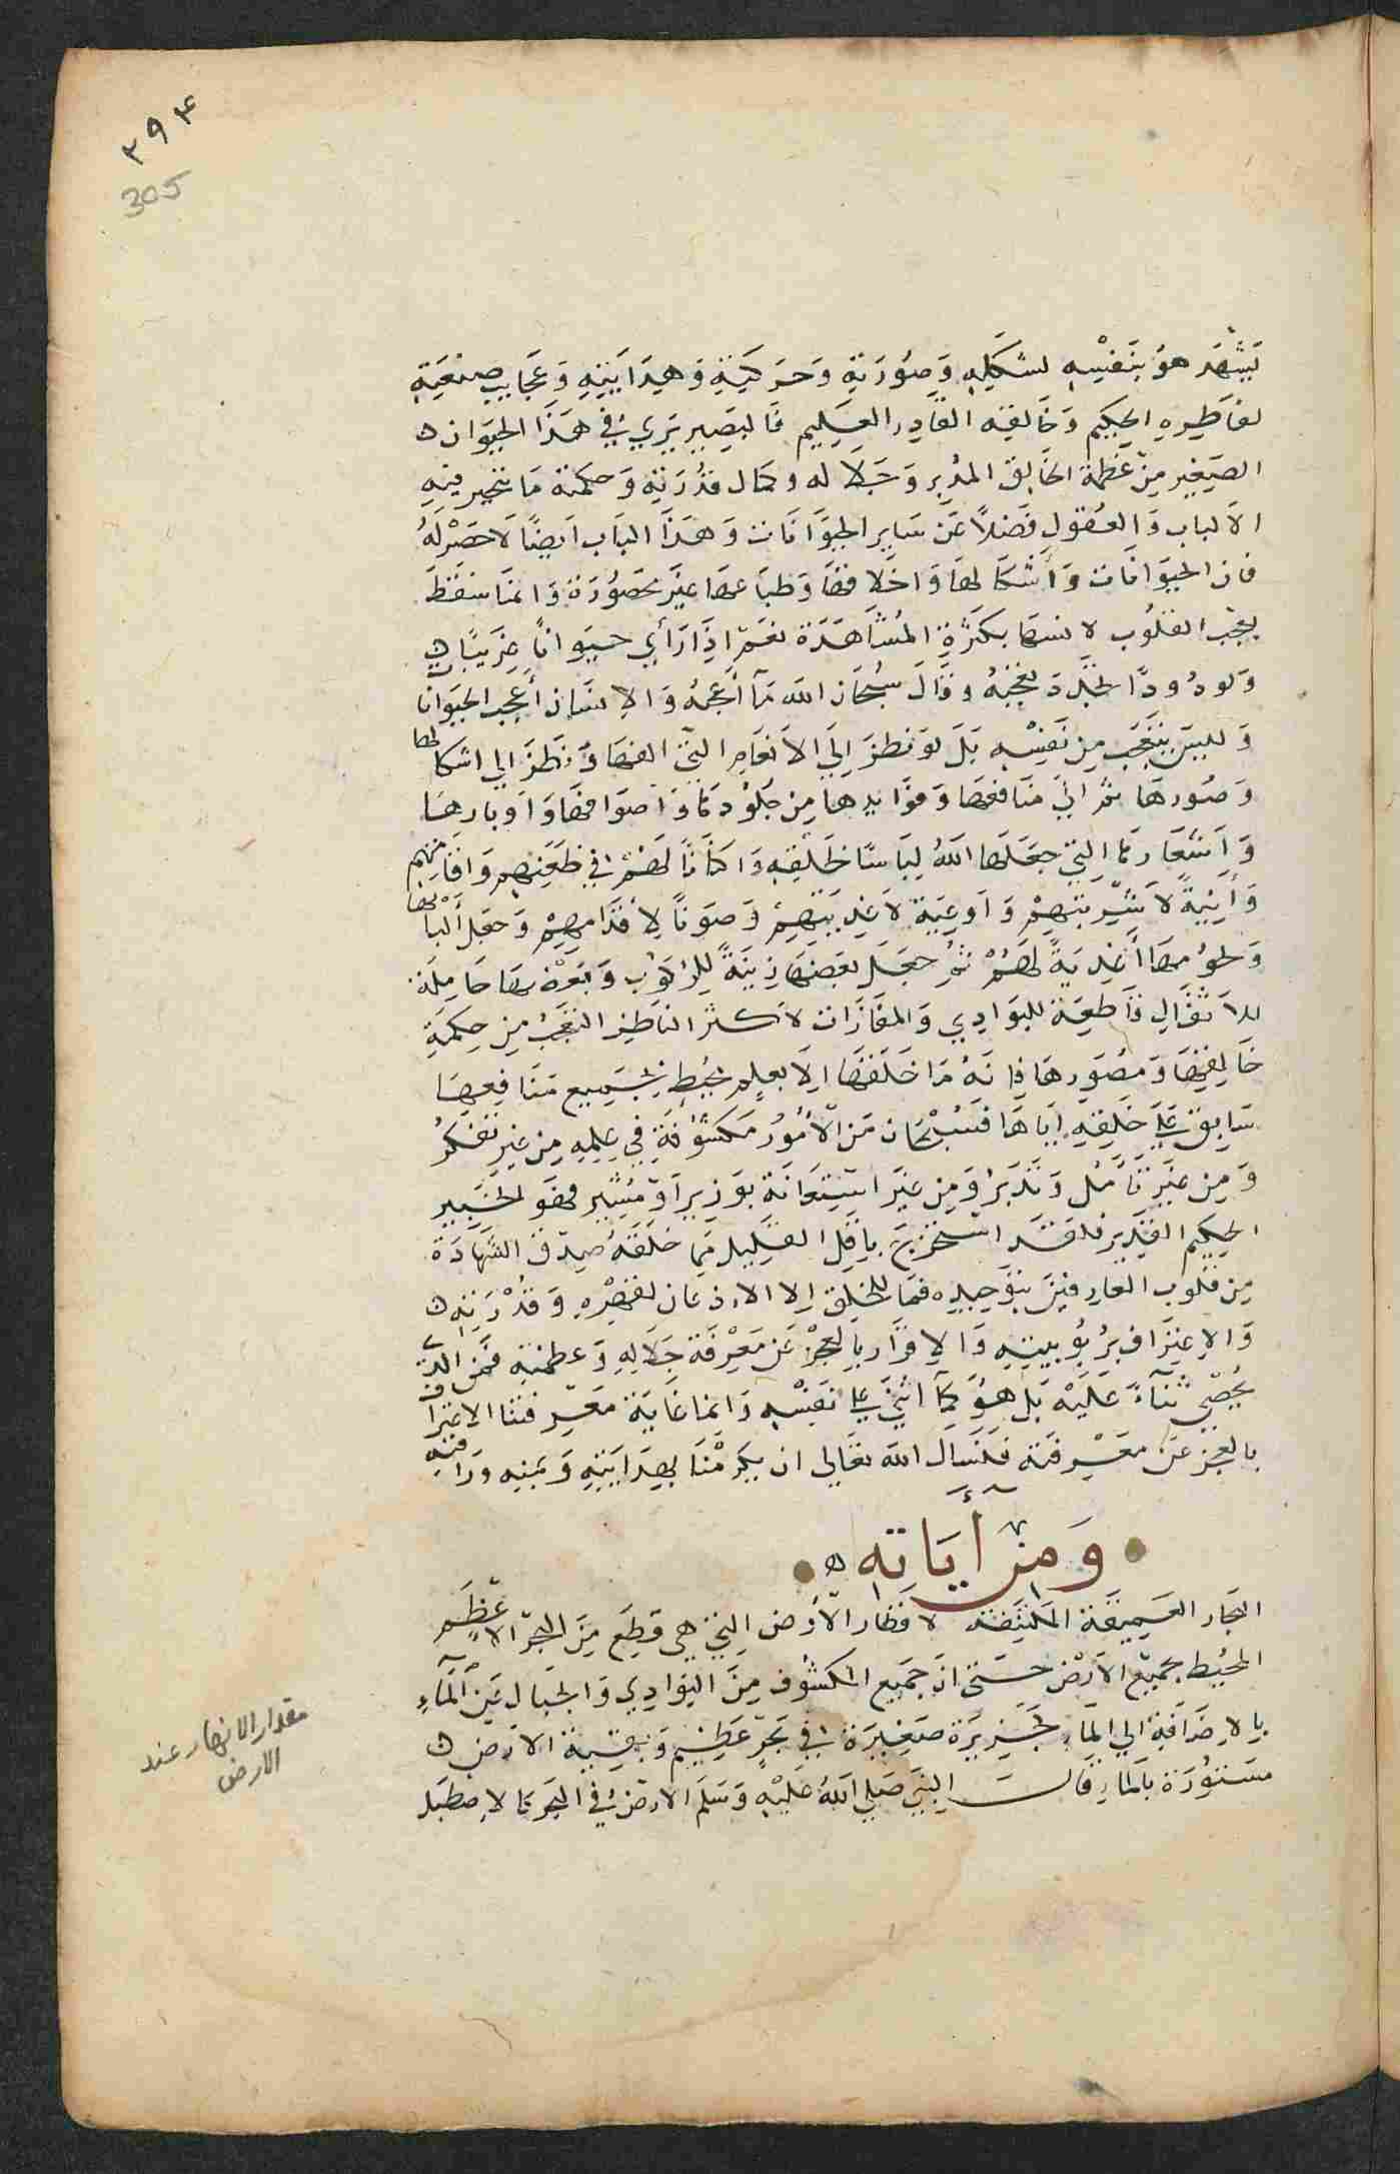 ٢٩٤
305
يشهد هو بنفسه لشكله وصورته وحركته وهدايته وعجايب صنعته
لفاطره الحكيم وخالقه القادر العليم فالبصير يري في هذا الحيوان
الصغير من عظمة الخالق المدبر وجلاله وكمال قدرته وحكمته ما تتحير فيه
الالباب والعقول فضلاً عن ساير الحيوانات وهذا الباب ايضًا لا حصر له
فان الحيوانات وأشكالها واخلاقها وطباعها غير محصورة وانما سقط
تعجب القلوب لانسها بكثرة المشاهدة نعم اذا رأي حيوانًا غريبًا
ولو دودًا تجدد تعجبه وقال سبحان الله ما أعجبه والانسان أعجب الحيوانات
وليس يتعجب من نفسه بل لو نظر إلي الانعام التي الفها ونظر الي اشكالها
وصورها ثم الي منافعها وفوايدها من جلودها واصوافها واوبارها
وأشعارها التي جعلها الله لباسًا لخلقه واكنانًا لهم في ظعنهم واقامتهم
وأنيةً لأشربتهم واوعية لاغذيتهم وصونًا لأقدامهم وجعل ألبانها
ولحومها أغذيةً لهم ثم جعل بعضها زينةً للركوب وبعضها حاملة
للاثقال قاطعة للبوادي والمفازات لاكثر الناظر التعجب من حكمة
خالقها ومصورها فانه ما خلقها الا بعلم محيط بجميع منافعها
سابق علي خلقه اياها فسبحان من الأمور مكشوفة في علمه من غير تفكر
ومن غير تأمل وتدبر ومن غير استعانة بوزير أو مشير فهو الخبير
الحكيم القدير فلقد استخرج باقل القليل مما خلقه صدق الشهادة
من قلوب العارفين بتوحيده فما للخلق الا الاذعان لقهره وقدرته
والاعتراف بربوبيته والاقرار بالعجز عن معرفة جلاله وعظمته فمن الذي
يحصي ثناءً عليه بل هو كما اثني علي نفسه وانما غاية معرفتنا الاعتراف
بالعجز عن معرفته فنسأل الله تعالي ان يكرمنا بهدايته وبمنه ورافته
ومن أياته
البحار العميقة المكتنفة لاقطار الأرض التي هي قطع من البحر الاعظم
المحيط بجميع الارض حتي ان جميع المكشوف من البوادي والجبال عن الماء
بالاضافة الي الماء كجزيرة صغيرة في بحر عظيم وبقية الارض
مستورة بالماء قال النبي صلي الله عليه وسلم الارض في البحر كالاصطبل
مقدار الانهار عند
الارض